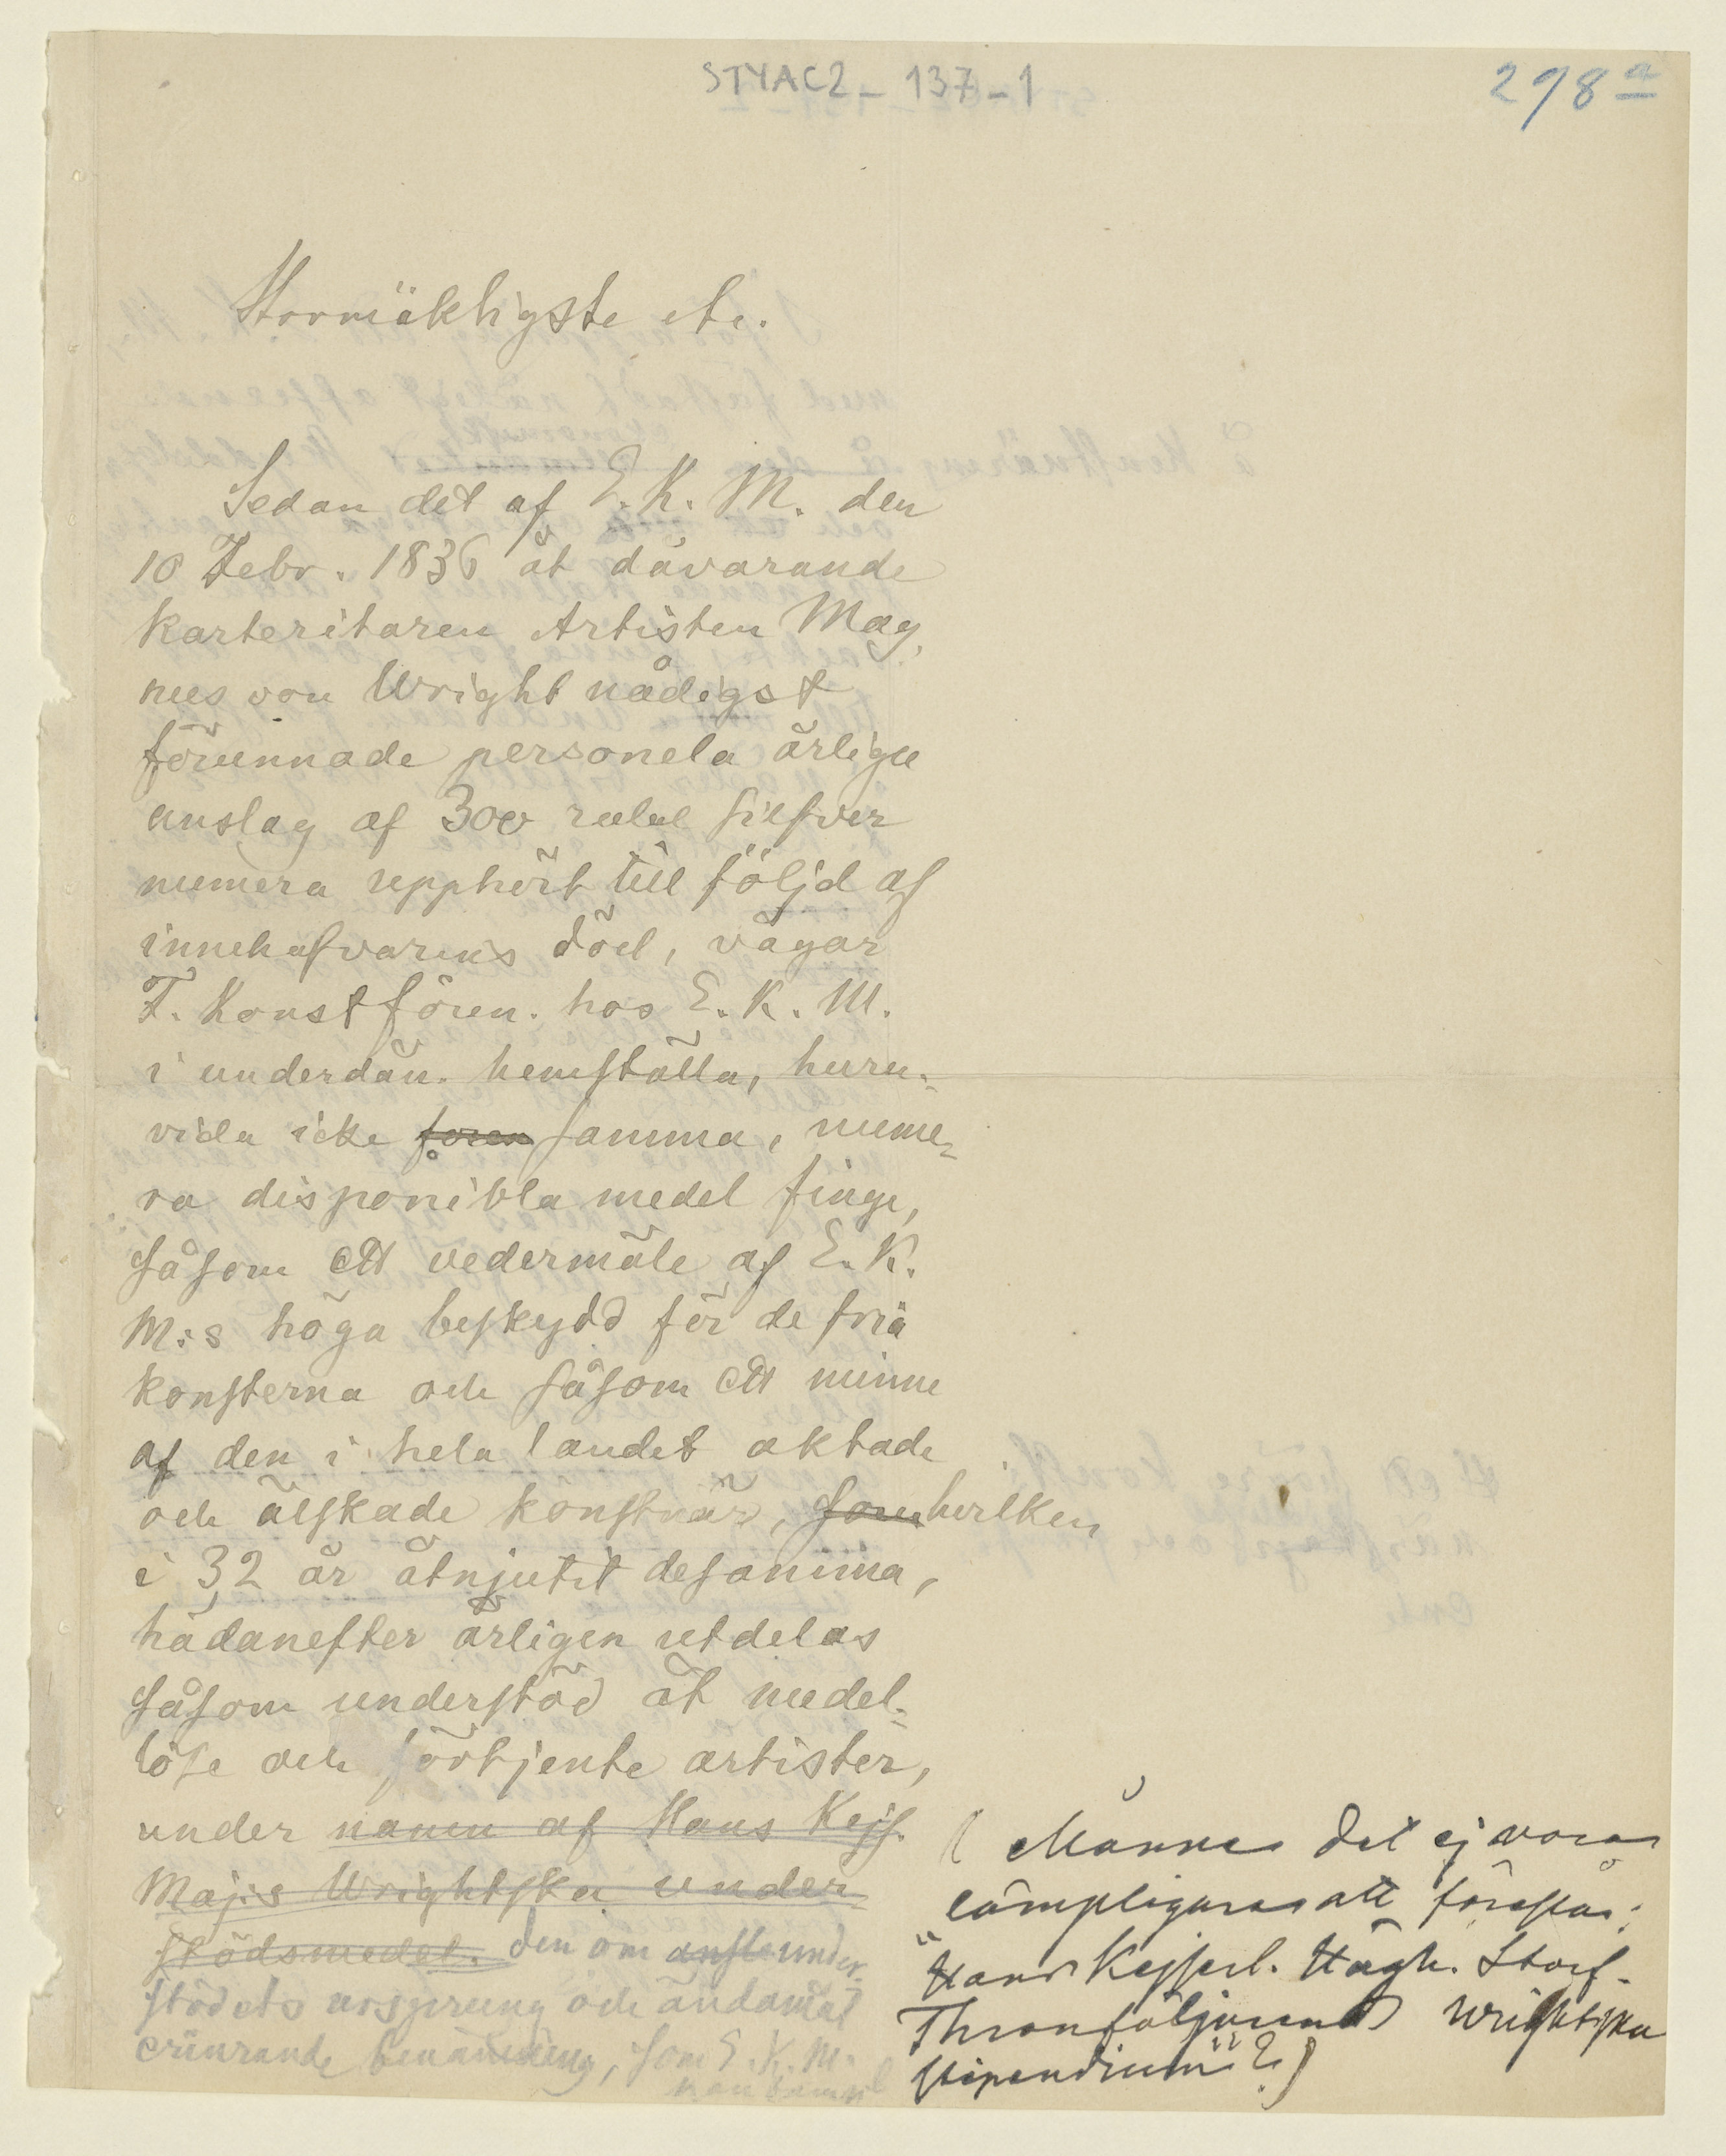 STYAC2_137_1
298 a
Stormäktigste etc.
Sedan det af E. K. M. den
10 Febr. 1836 åt dåvarande
karteritaren Artisten Mag,
nus von Wright nådigst
förunnade personela årliga
anslag af 300 rubel silfver
numera upphört till följd af
innehafvarens död, vågar
F. Konstfören. hos E. K. M.
i underdån. hemställa, huru-
vida icke samma, nume-
ra disponibla medel finge,
såsom ett vedermäle af E. K.
M:s höga beskydd för de fria
konsterna och såsom ett minne
af den i hela landet aktade
och älskade konstnär, som hvilken
i 32 år åtnjutit desamma,
hädanefter årligen utdelas
såsom understöd åt medel-
löse och förtjente artister,
under namn af Hans Kejs.
Maj:s Wrightska under
stödsmedel. den om under
stödets ursprung och ändamål
erinrande benämning, som E. K. M.
( Månne det ej vore
lämpligare att föreslå:
"Hans Kejserl. Högh. Storf.
Thronföljarens Wrightska
stipendium"?)